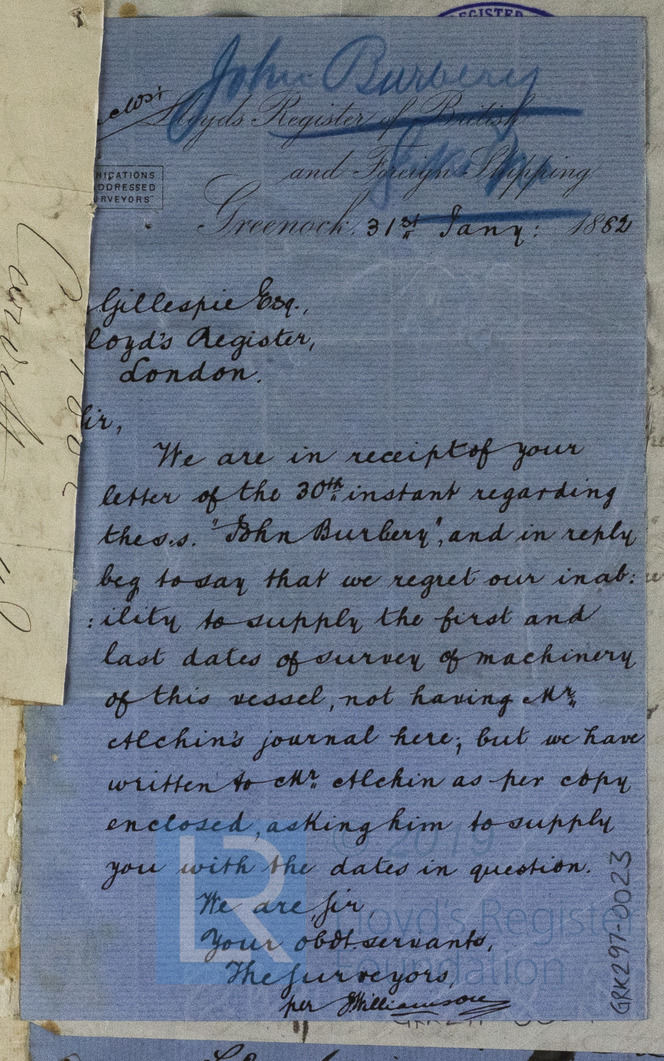 REGISTER
John Burbery
clos:
Lloyds Register of British
and Foreign Shipping
NICATIONS
DDRESSED
RVEYORS"
Greenock, 31st Jany: 1882
Gillespie Esq.,
loyd's Register,
London.
Sir,
We are in receipt of your
letter of the 30th instant regarding
the s.s. "John Burbery", and in reply
beg to say that we regret our inab:
:ility to supply the first and
last dates of survey of machinery
of this vessel, not having Mr.
Alchin's journal here; but we have
written to Mr. Alchin as per copy
enclosed, asking him to supply
you with the dates in question.
We are, Sir,
Your obdt. servants,
The Surveyors,
per JWilliamson
GRK297-0023
© 2019
LR
Lloyd's Register
Foundation